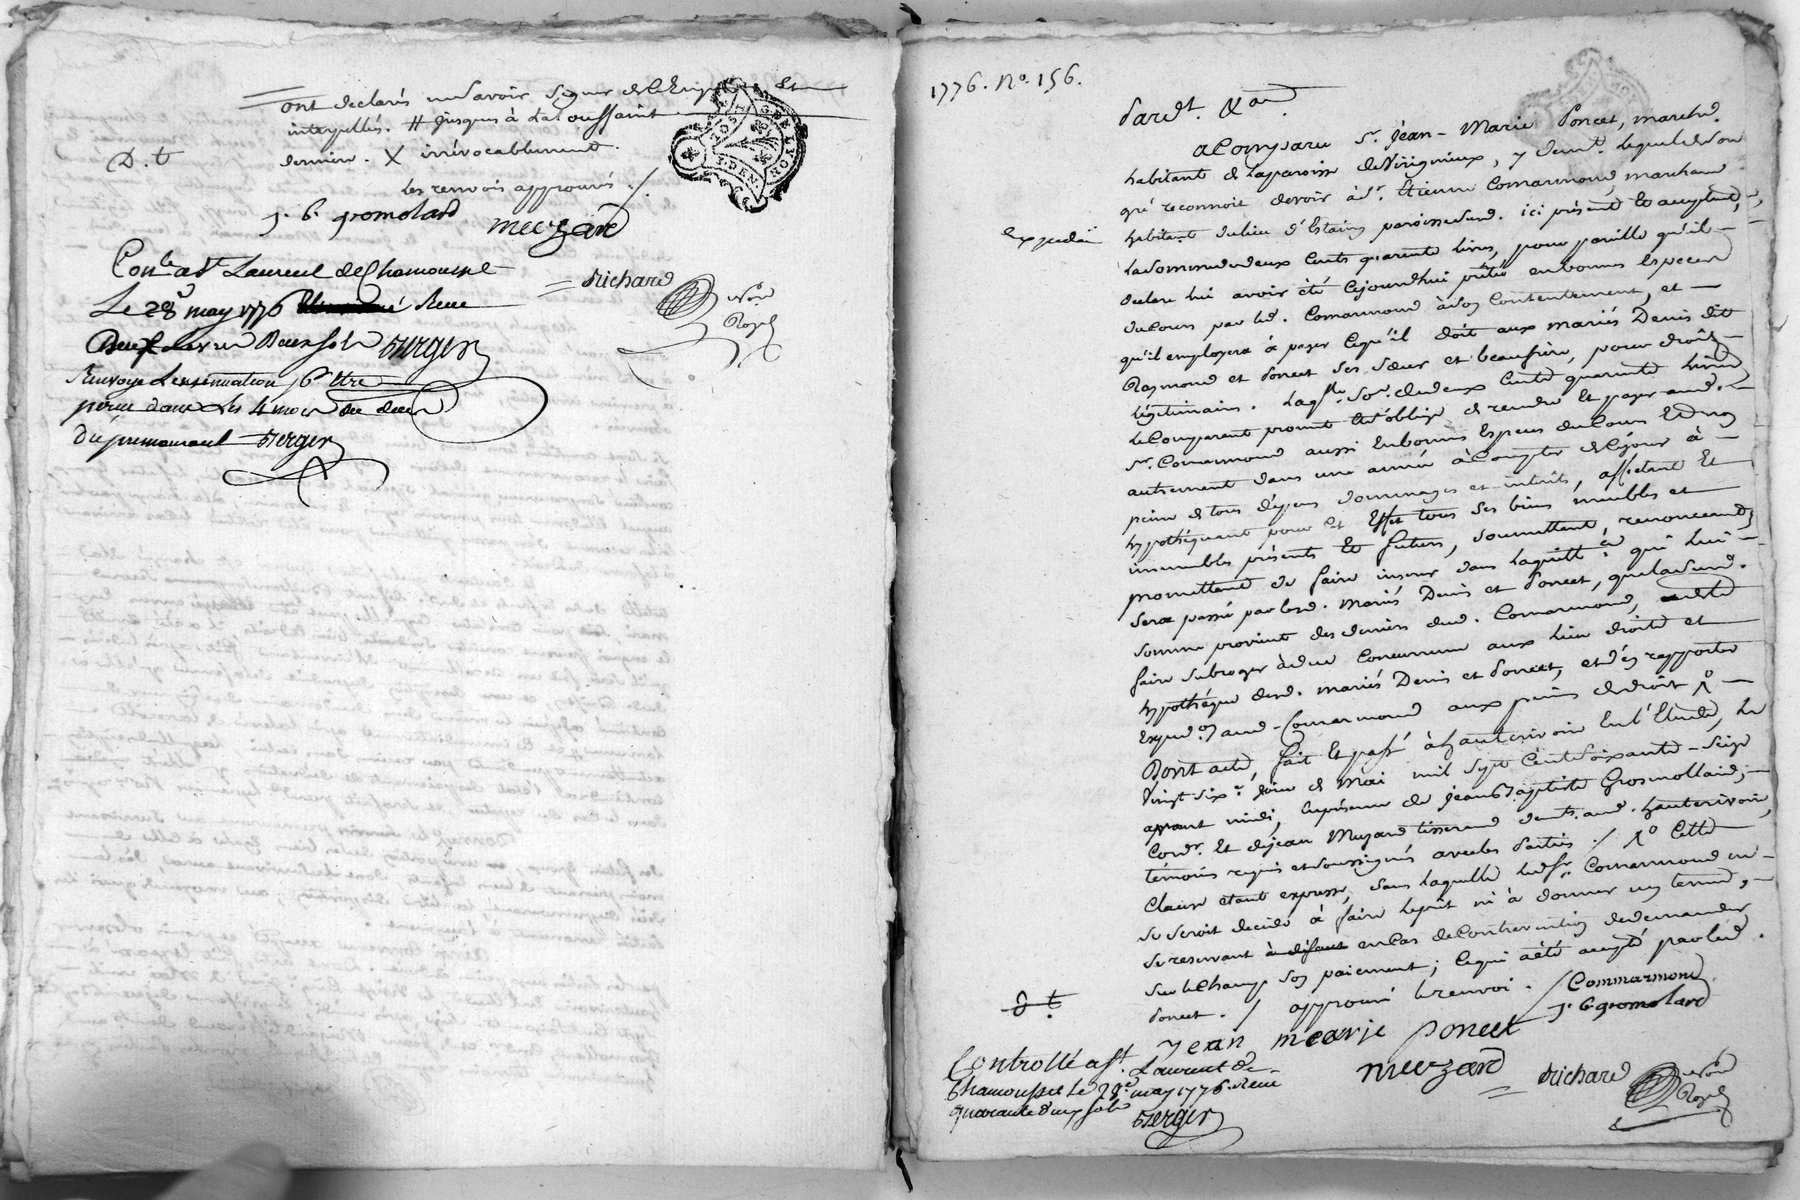 ont declarés ne savoir signer de ce Enquis Et
interpellés. # jusques à la toussaint
derniere. X irrévocablement.
D. t
les renvois approuvés ./.
J. b. gromolard
muzard
Con.le à St Laurent de Chamousset
Le 28e may 1776 Reçu
richard
no.re
Royal
sols Berger
Renvoyé Linsinuation
pour dans Les 4 mois du deces
du premourant Berger
GEN LYON
1776. No. 156.
Pard.t &a.
a Comparu Sr. Jean-Marie Poncet, marchd.
habitant de la paroisse de Virigneux, y demt. lequel de son
gré reconnoit devoir à Sr. Etienne Comarmond, marchand
habitant du lieu d'Estaing paroisse dud. ici présent Et acceptant,
Expediée
la somme de deux Cents quarante livres, pour pareille qu'il
declare lui avoir été Cejourdhui prêtée en bonnes Especes
du Cours par led. Comarmond à son Contentement, et
qu'il employera à payer Cequ'il doit aux mariés Denis dit
Raymond et Poncet ses sœur et beaufrère, pour droits
légitimaires. Laq.lle So.e de deux Cents quarante livres
le Comparant promet Et s'oblige de rendre Et payer aud.
Sr. Comarmond aussi En bonnes Especes du Cours Et non
autrement dans une année à Compter de Cejour à
peine de tous dépens dommages et intérêts, affectant Et
hypothéquant pour cet Effet tous ses biens meubles et
immeubles présents Et futurs, soumettant, renonceant,
promettant de faire inserer dans la quitt.ce qui lui
sera passée par lesd. mariés Denis et Poncet, que ladud.
somme provient des deniers dud. Comarmond,
faire subroger à due Concurrence aux lieu droits et
hypothéque desd. mariés Denis et Poncet, et d'en rapporter
Expedon. aud. Comarmond aux peines de droit
Dont acte, fait Et passé à hauterivoire En l'Etude, Le
vingt six.e jour de mai mil sept Cent soixante-seize
avant midi, Enpresence de Jean Baptiste Grosmollard,
Cord.r Et de jean Muzard tisserand demts. aud. hauterivoire,
témoins requis et soussignés avec les Parties ./. Cette
Clause étant expresse, sans laquelle led. Sr. Comarmond ne
se seroit decidé à faire le prêt ni à donner un terme,
se reservant à défaut en Cas de Contravention de demander
sur le Champ son paiement; Cequi a été accepté par led.
Poncet. / approuvé le renvoi. /
D. t.
Commarmond
J. b. gromolard
jean marie poncet
muzard
richard
no.re
Royal
Controllé à St. Laurent de
Chamousset Le 28e may 1776. Reçu
quarante deux sols
Berger